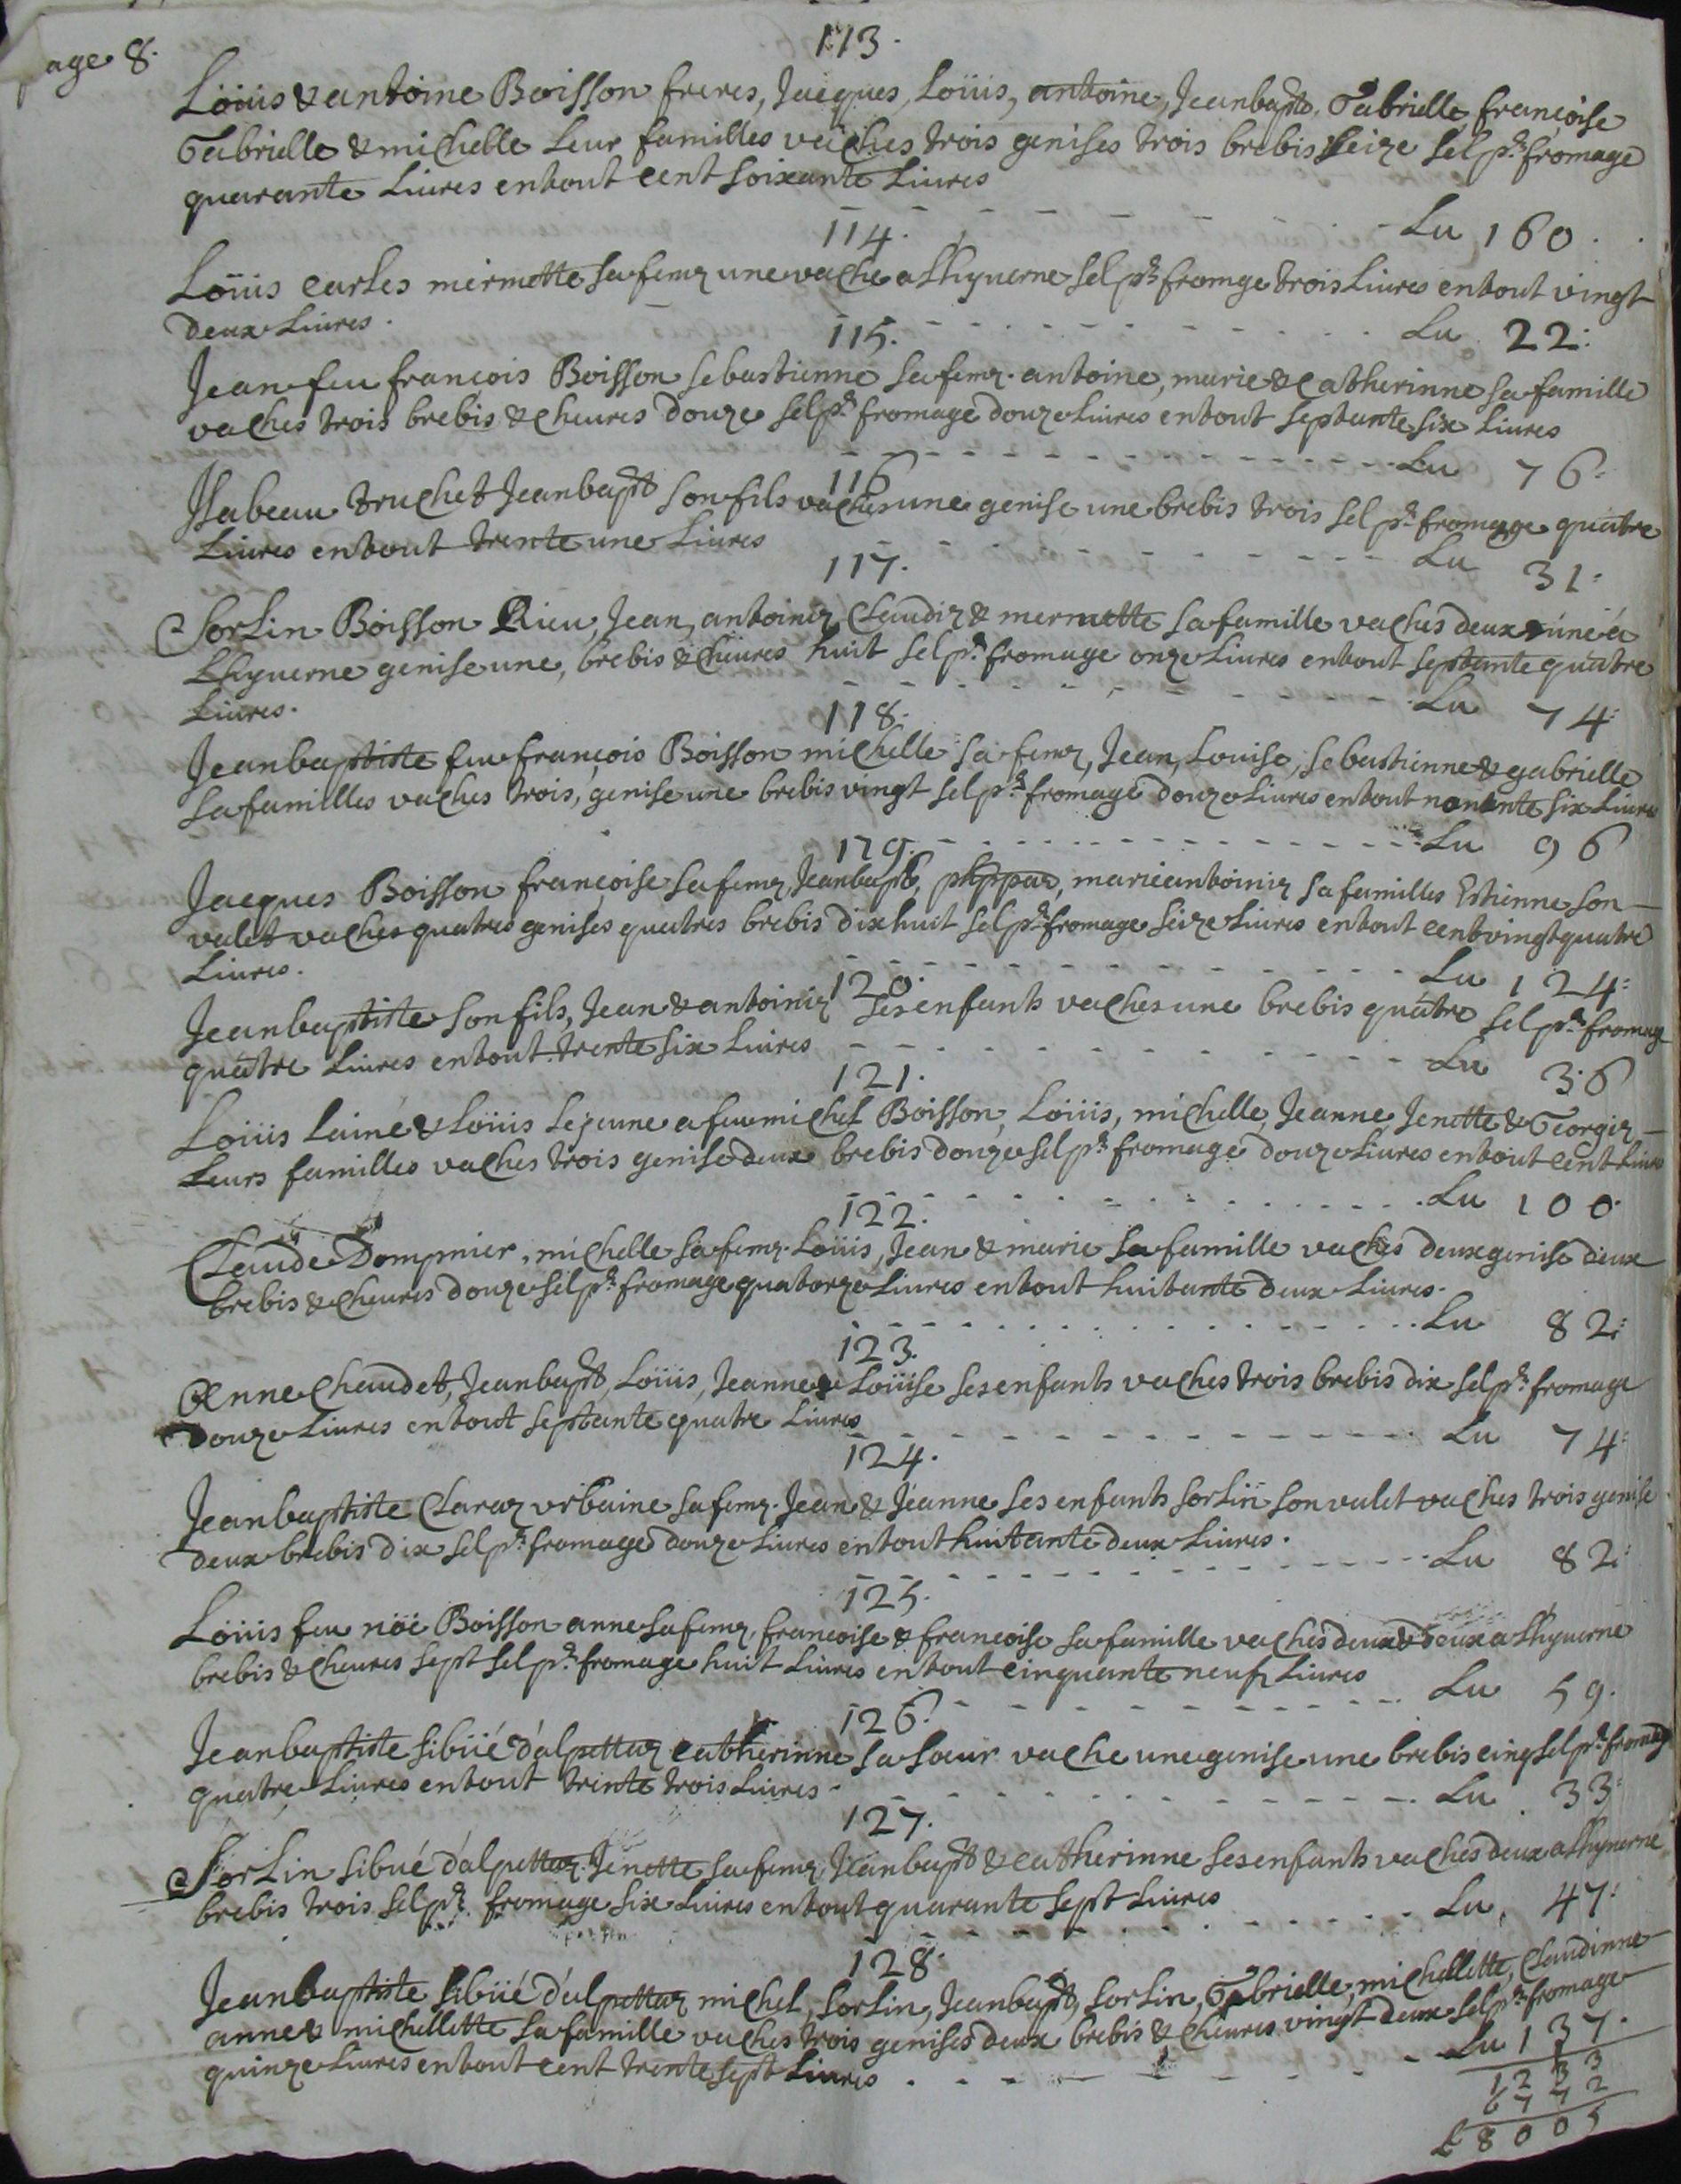 page 8.
113.
Loüis & antoine Boisson freres, Jacques, Loüis, antoine, Jeanbapte, Gabrielle, françoise
Gabrielle & michelle Leur familles vaches trois genises trois brebis seize sel pr. fromage
quarante Liures entout cent soixante Liures
Lu 160.
114.
Loüis carles mermette sa feme une vache a Lhyuerne sel pr. fromge trois Liures entout vingt
deux Liures.
Lu 22:
115.
Jean feu françois Boisson sebastienne sa feme. antoine, marie & Catherinne sa famille
vaches trois brebis & cheures douze sel pr. fromage douze Liures entout septante six Liures
Lu 76:
116
Isabeau truchet Jeanbapt son fils vaches une genise une brebis trois sel pr. fromage quatre
Liures entout trente une Liures
Lu 31:
117.
Sorlin Boisson Rieu, Jean, antoine, Claudie & mermette sa famille vaches deux & une á
Lhyuerne genise une, brebis & cheures huit sel pr. fromage onze Liures entout septante quatre
Liures.
Lu 74:
118.
Jeanbaptiste feu françois Boisson michelle sa feme, Jean, Louise, sebastienne & gabrielle
sa familles vaches trois, genise une brebis vingt sel pr. fromage douze Liures entout nonante six Liures
Lu 96
119.
Jacques Boisson françoise sa feme, Jeanbapte, marieantoinie sa familles Estienne son
valet vaches quatres genises quatres brebis dixhuit sel pr. fromage seize Liures entout cent vingt quatre
Liures.
Lu 124:
120.
Jeanbaptiste son fils, Jean & antoinie ses enfants vaches une brebis quatre sel pr. fromage
quatre Liures entout trente six Liures
Lu 36
121.
Loüis Lainé & Loüis Lejeune a feu michel Boisson, Loüis, michelle, Jeanne, Jenette & Georgie
Leurs familles vaches trois genise deux brebis douze sel pr. fromage douze Liures entout cent Liures
Lu 100.
122.
Claude Dompnier, michelle sa feme. Loüis, Jean & marie sa famille vaches deux genise deux
brebis & cheures douze sel pr. fromage quatorze Liures entout huitante deux Liures.
Lu 82:
123.
Anne Chaudet, Jeanbapt, Loüis, Jeanne & Loüise ses enfants vaches trois brebis dix sel pr. fromage
Douze Liures entout septante quatre Liures
Lu 74:
124.
Jeanbaptiste Claraz vrbaine sa feme. Jean & Jeanne ses enfants sorlin son valet vaches trois genise
deux brebis dix sel pr. fromage douze Liures entout huitante deux Liures.
Lu 82:
125.
Loüis feu noë Boisson anne sa feme, francoise & francoise sa famille vaches deux & deux a Lhyuerne
brebis & cheures sept sel pr. fromage huit Liures entout cinquante neuf Liures
Lu 59.
126.
Jeanbaptiste sibüé d'alpettaz catherinne sa soeur vache une genise une brebis cinq sel pr. fromage
quatre Liures entout trente trois Liures.
Lu 33:
127.
Sorlin sibué d'alpettaz Jenette sa feme, Jeanbapt & catherinne ses enfants vaches deux a Lhyuerne
brebis trois sel pr. fromage six Liures entout quarante sept Liures
Lu 47:
128.
Jeanbaptiste sibüé d'alpettaz michel, sorlin, Jeanbapt, sorlin, Gabrielle, michellette, Claudinne
anne & michellette sa famille vaches trois genises deux brebis & cheures vingt deux sel pr. fromage
quinze Liures entout cent trente sept Liures
Lu 137.
1233
6772
L 8005